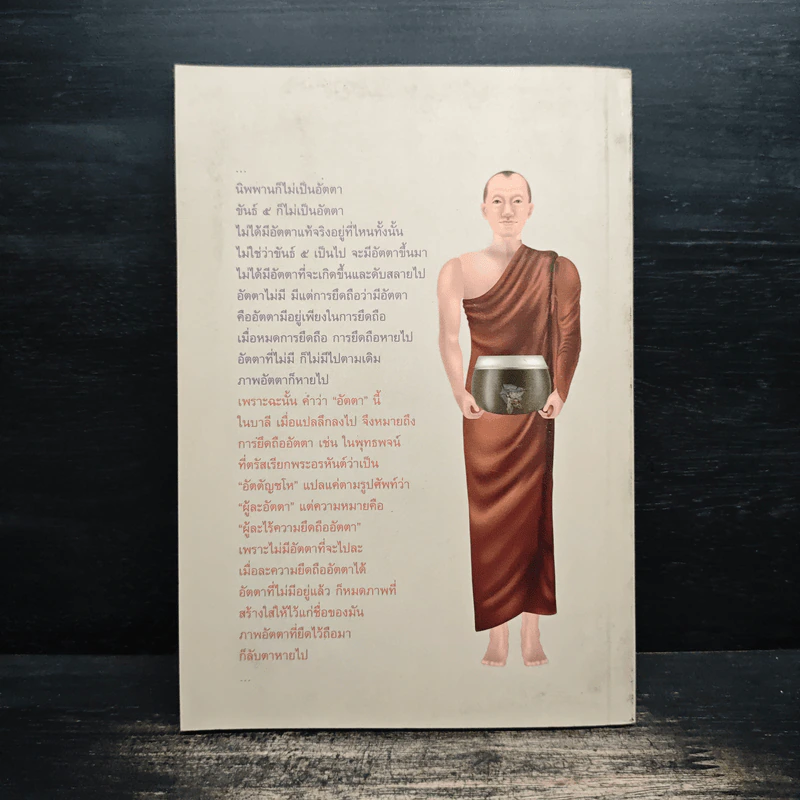 ...
นิพพานก็ไม่เป็นอัตตา
ขันธ์ ๕ ก็ไม่เป็นอัตตา
ไม่ได้มีอัตตาแท้จริงอยู่ที่ไหนทั้งนั้น
ไม่ใช่ว่าขันธ์ ๕ เป็นไป จะมีอัตตาขึ้นมา
ไม่ได้มีอัตตาที่จะเกิดขึ้นและดับสลายไป
อัตตาไม่มี มีแต่การยึดถือว่ามีอัตตา
คืออัตตามีอยู่เพียงในการยึดถือ
เมื่อหมดการยึดถือ การยึดถือหายไป
อัตตาที่ไม่มี ก็ไม่มีไปตามเดิม
ภาพอัตตาก็หายไป
เพราะฉะนั้น คำว่า “อัตตา” นี้
ในบาลี เมื่อแปลลึกลงไป จึงหมายถึง
การยึดถืออัตตา เช่น ในพุทธพจน์
ที่ตรัสเรียกพระอรหันต์ว่าเป็น
“อัตตัญชโห” แปลแค่ตามรูปศัพท์ว่า
“ผู้ละอัตตา” แต่ความหมายคือ
“ผู้ละไร้ความยึดถืออัตตา”
เพราะไม่มีอัตตาที่จะไปละ
เมื่อละความยึดถืออัตตาได้
อัตตาที่ไม่มีอยู่แล้ว ก็หมดภาพที่
สร้างใส่ให้ไว้แก่ชื่อของมัน
ภาพอัตตาที่ยึดไว้ถือมา
ก็ลับตาหายไป
...